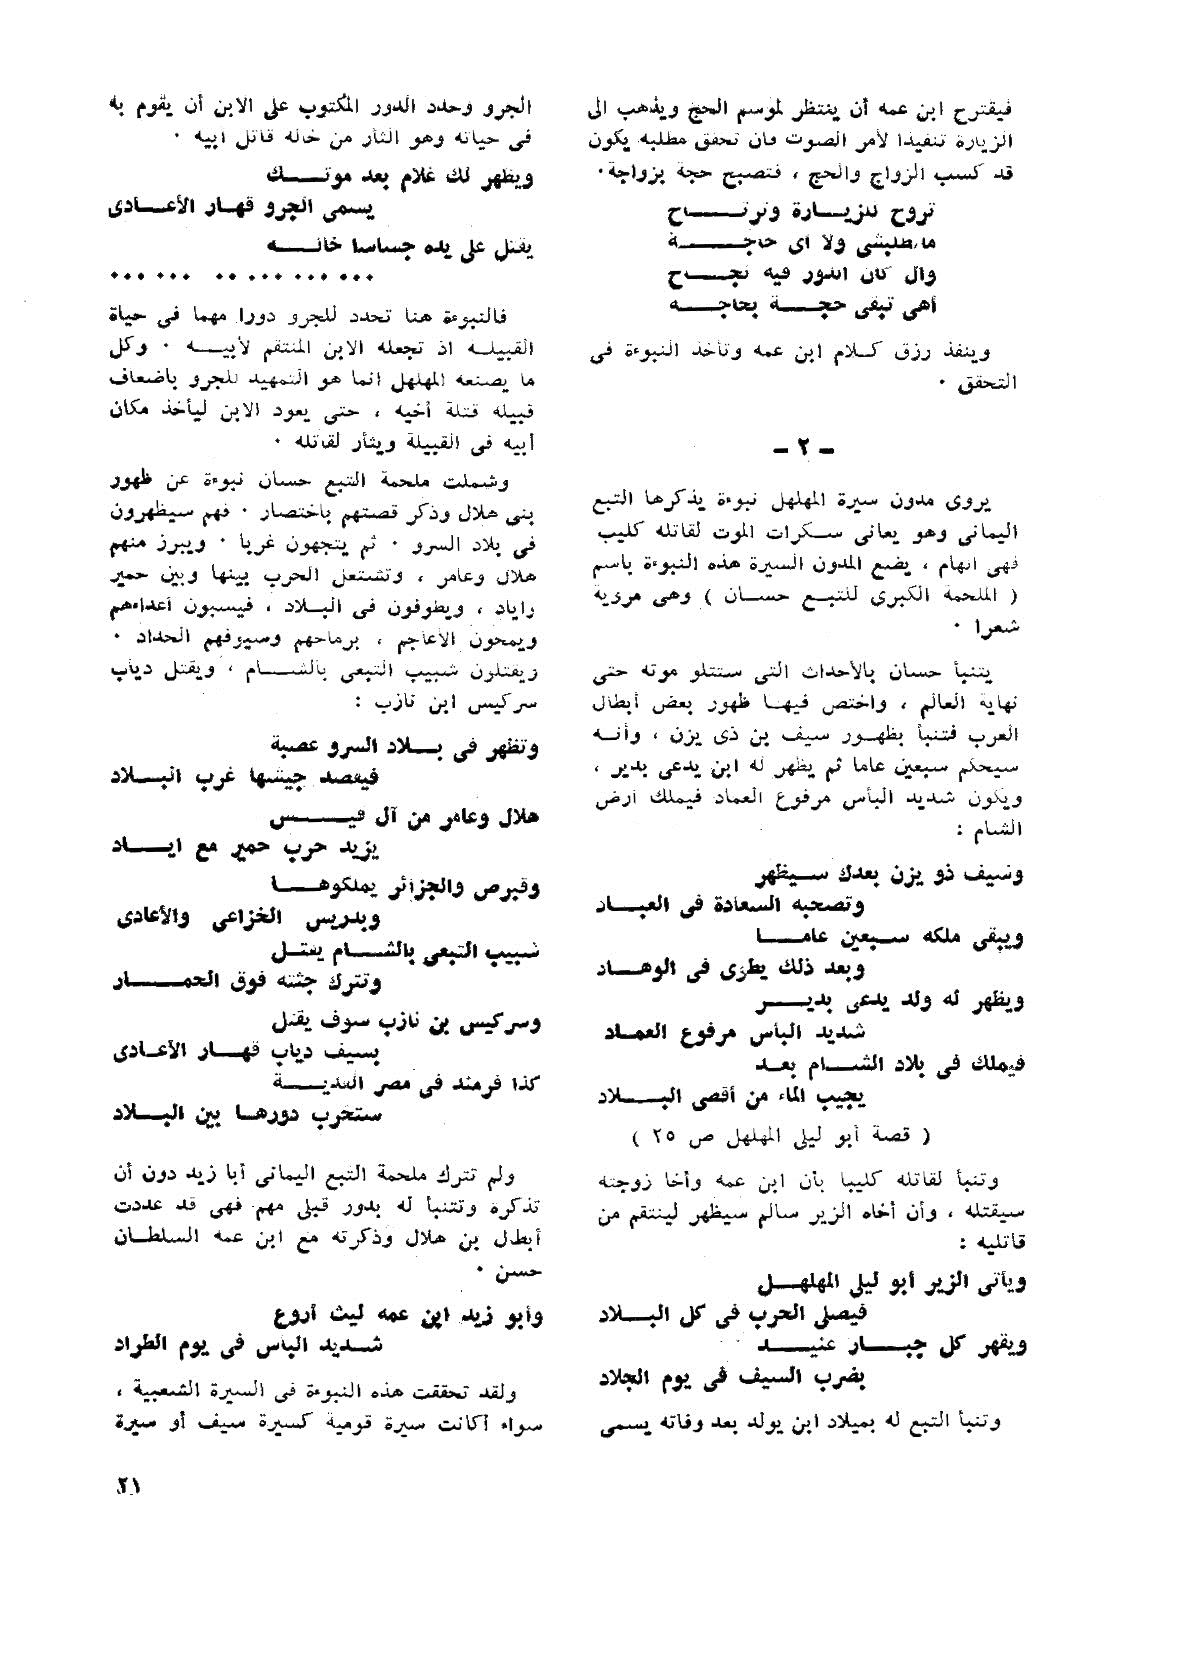 فيقترح ابن عمه أن ينتظر لموسم الحج ويذهب الى
الزيارة تنفيذا لأمر الصوت فان تحقق مطلبه يكون
قد كسب الزواج والحج ، فتصبح حجة بزواجة ٠
تروح للزيـــارة وترتـــــاح
ما تطلبشى ولا أى حاجـــــــة
وال كان النذور فيه نجـــــاح
أهى تبقى حجـــــة بحاجـــــه
وينفذ رزق كـلام ابن عمه وتأخذ النبوءة فى
التحقق ٠
– ٢ –
يروى مدون سيرة المهلهل نبوءة يذكرها التبع
اليمانى وهو يعانى سـكرات الموت لقاتله كليب
فهى ابهام ، يضع المدون السيرة هذه النبوءة باسم
( الملحمة الكبرى للتبـع حسـان ) وهى مروية
شعرا ٠
يتنبأ حسان بالأحداث التى ستتلو موته حتى
نهاية العالم ، واختص فيهـا ظهور بعض أبطال
العرب فتنبأ بظهـور سيف بن ذى يزن ، وأنـه
سيحكم سبعين عاما ثم يظهر له ابن يدعى بدير ،
ويكون شديد البأس مرفوع العماد فيملك أرض
الشام :
وسيف ذو يزن بعدك سـيظهر
وتصحبه السعادة فى العبـــاد
ويبقى ملكه سـبعين عامــــا
وبعد ذلك يطزى فى الوهـــاد
ويظهر له ولد يدعى بديـــر
شديد البأس مرفوع العمـاد
فيملك فى بلاد الشـــام بعـد
يجيب الماء من أقصى البـــلاد
( قصة أبو ليلى المهلهل ص ٢٥ )
وتنبأ لقاتله كليبا بأن ابن عمه وأخا زوجته
سيقتله ، وأن أخاه الزير سالم سيظهر لينتقم من
قاتليه :
ويأتى الزير أبو ليلى المهلهـــل
فيصلى الحرب فى كل البــلاد
ويقهر كل جبـــار عنيـــــد
بضرب السيف فى يوم الجلاد
وتنبأ التبع له بميلاد ابن يولد بعد وفاته يسمى
الجرو وحدد الدور المكتوب على الابن أن يقوم به
فى حياته وهو الثأر من خاله قاتل أبيه ٠
ويظهر لك غلام بعد موتــــك
يسمى الجرو قهـار الأعـــادى
يقتل على يده جساسا خالـــه
٠٠٠ ٠٠٠ ٠٠٠ ٠٠ ٠٠٠ ٠٠٠
فالنبوءة هنا تحدد للجرو دورا مهما فى حياة
القبيلـه اذ تجعله الابن المنتقم لأبيــه ٠ وكل
ما يصنعه المهلهل انما هو التمهيد للجرو باضعاف
قبيله قتلة أخيه ، حتى يعود الابن ليأخذ مكان
أبيه فى القبيلة ويثأر لقاتله ٠
وشملت ملحمة التبع حسان نبوءة عن ظهور
بنى هلال وذكر قصتهم باختصار ٠ فهم سيظهرون
فى بلاد السرو ٠ ثم يتجهون غربا ٠ ويبرز منهم
هلال وعامر ، وتشتعل الحرب بينها وبين حمير
واياد ، ويطوفون فى البـلاد ، فيسبون أعداءهم
ويمحون الأعاجم ، برماحهم وسيوفهم الحداد ٠
ويقتلون شبيب التبعى بالشـــام ، ويقتل دياب
سركيس ابن نازب :
وتظهر فى بـــلاد السرو عصبة
فيقصد جيشها غرب البـــلاد
هلال وعامر من آل قيـــــس
يزيد حرب حمير مع ايـــاد
وقبرص والجزائر يملكوهـــا
وبدريس الخزاعى والأعادى
شبيب التبعى بالشـــام يقتـل
وتترك جثته فوق الحمـــــار
وسركيس بن نازب سوف يقتل
بسيف دياب قهـــار الأعـادى
كذا فرمند فى مصر العديـــة
ستخرب دورهـا بين البـــلاد
ولم تترك ملحمة التبع اليمانى أبا زيد دون أن
تذكره وتتنبأ له بدور قبلى مهم فهى قد عددت
أبطـل بن هلال وذكرته مع ابن عمه السلطـان
حسن ٠
وأبو زيد ابن عمه ليث أروع
شـــديد البأس فى يوم الطراد
ولقد تحققت هذه النبوءة فى السيرة الشعبية ،
سواء أكانت سيرة قومية كسيرة سيف أو سيرة
٢١